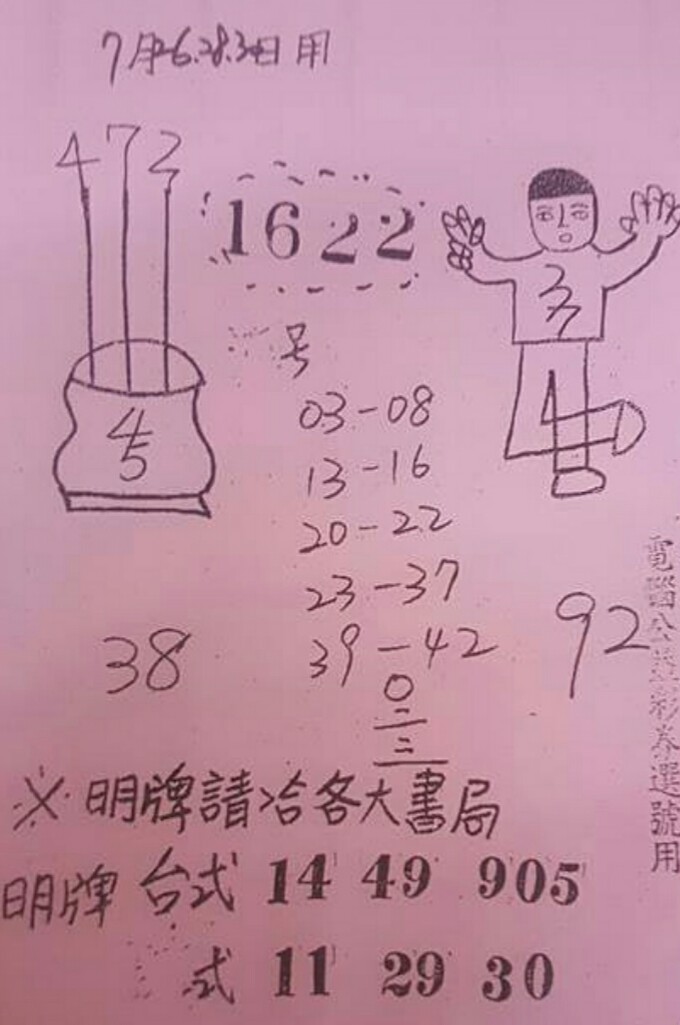 7月26.28.30日用
4 7 2
1622
37
号
4
03-08
45
13-16
20-22
23-37
39-42
38
92
0
二
三
※明牌請洽各大書局
明牌 台式 14 49 905
式 11 29 30
電腦公益彩券選號用